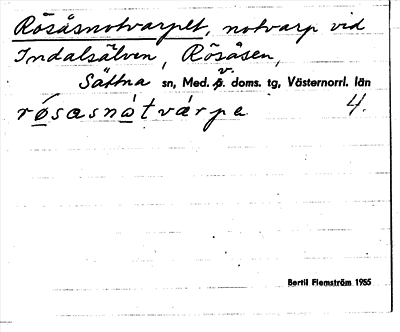 Rösåsnotvarpet, notvarp vid
Indalsälven, Rösåsen,
Sättna sn, Med. v. doms. tg, Västernorrl. län
røsasnòtvárpe 4.
Bertil Flemström 1955